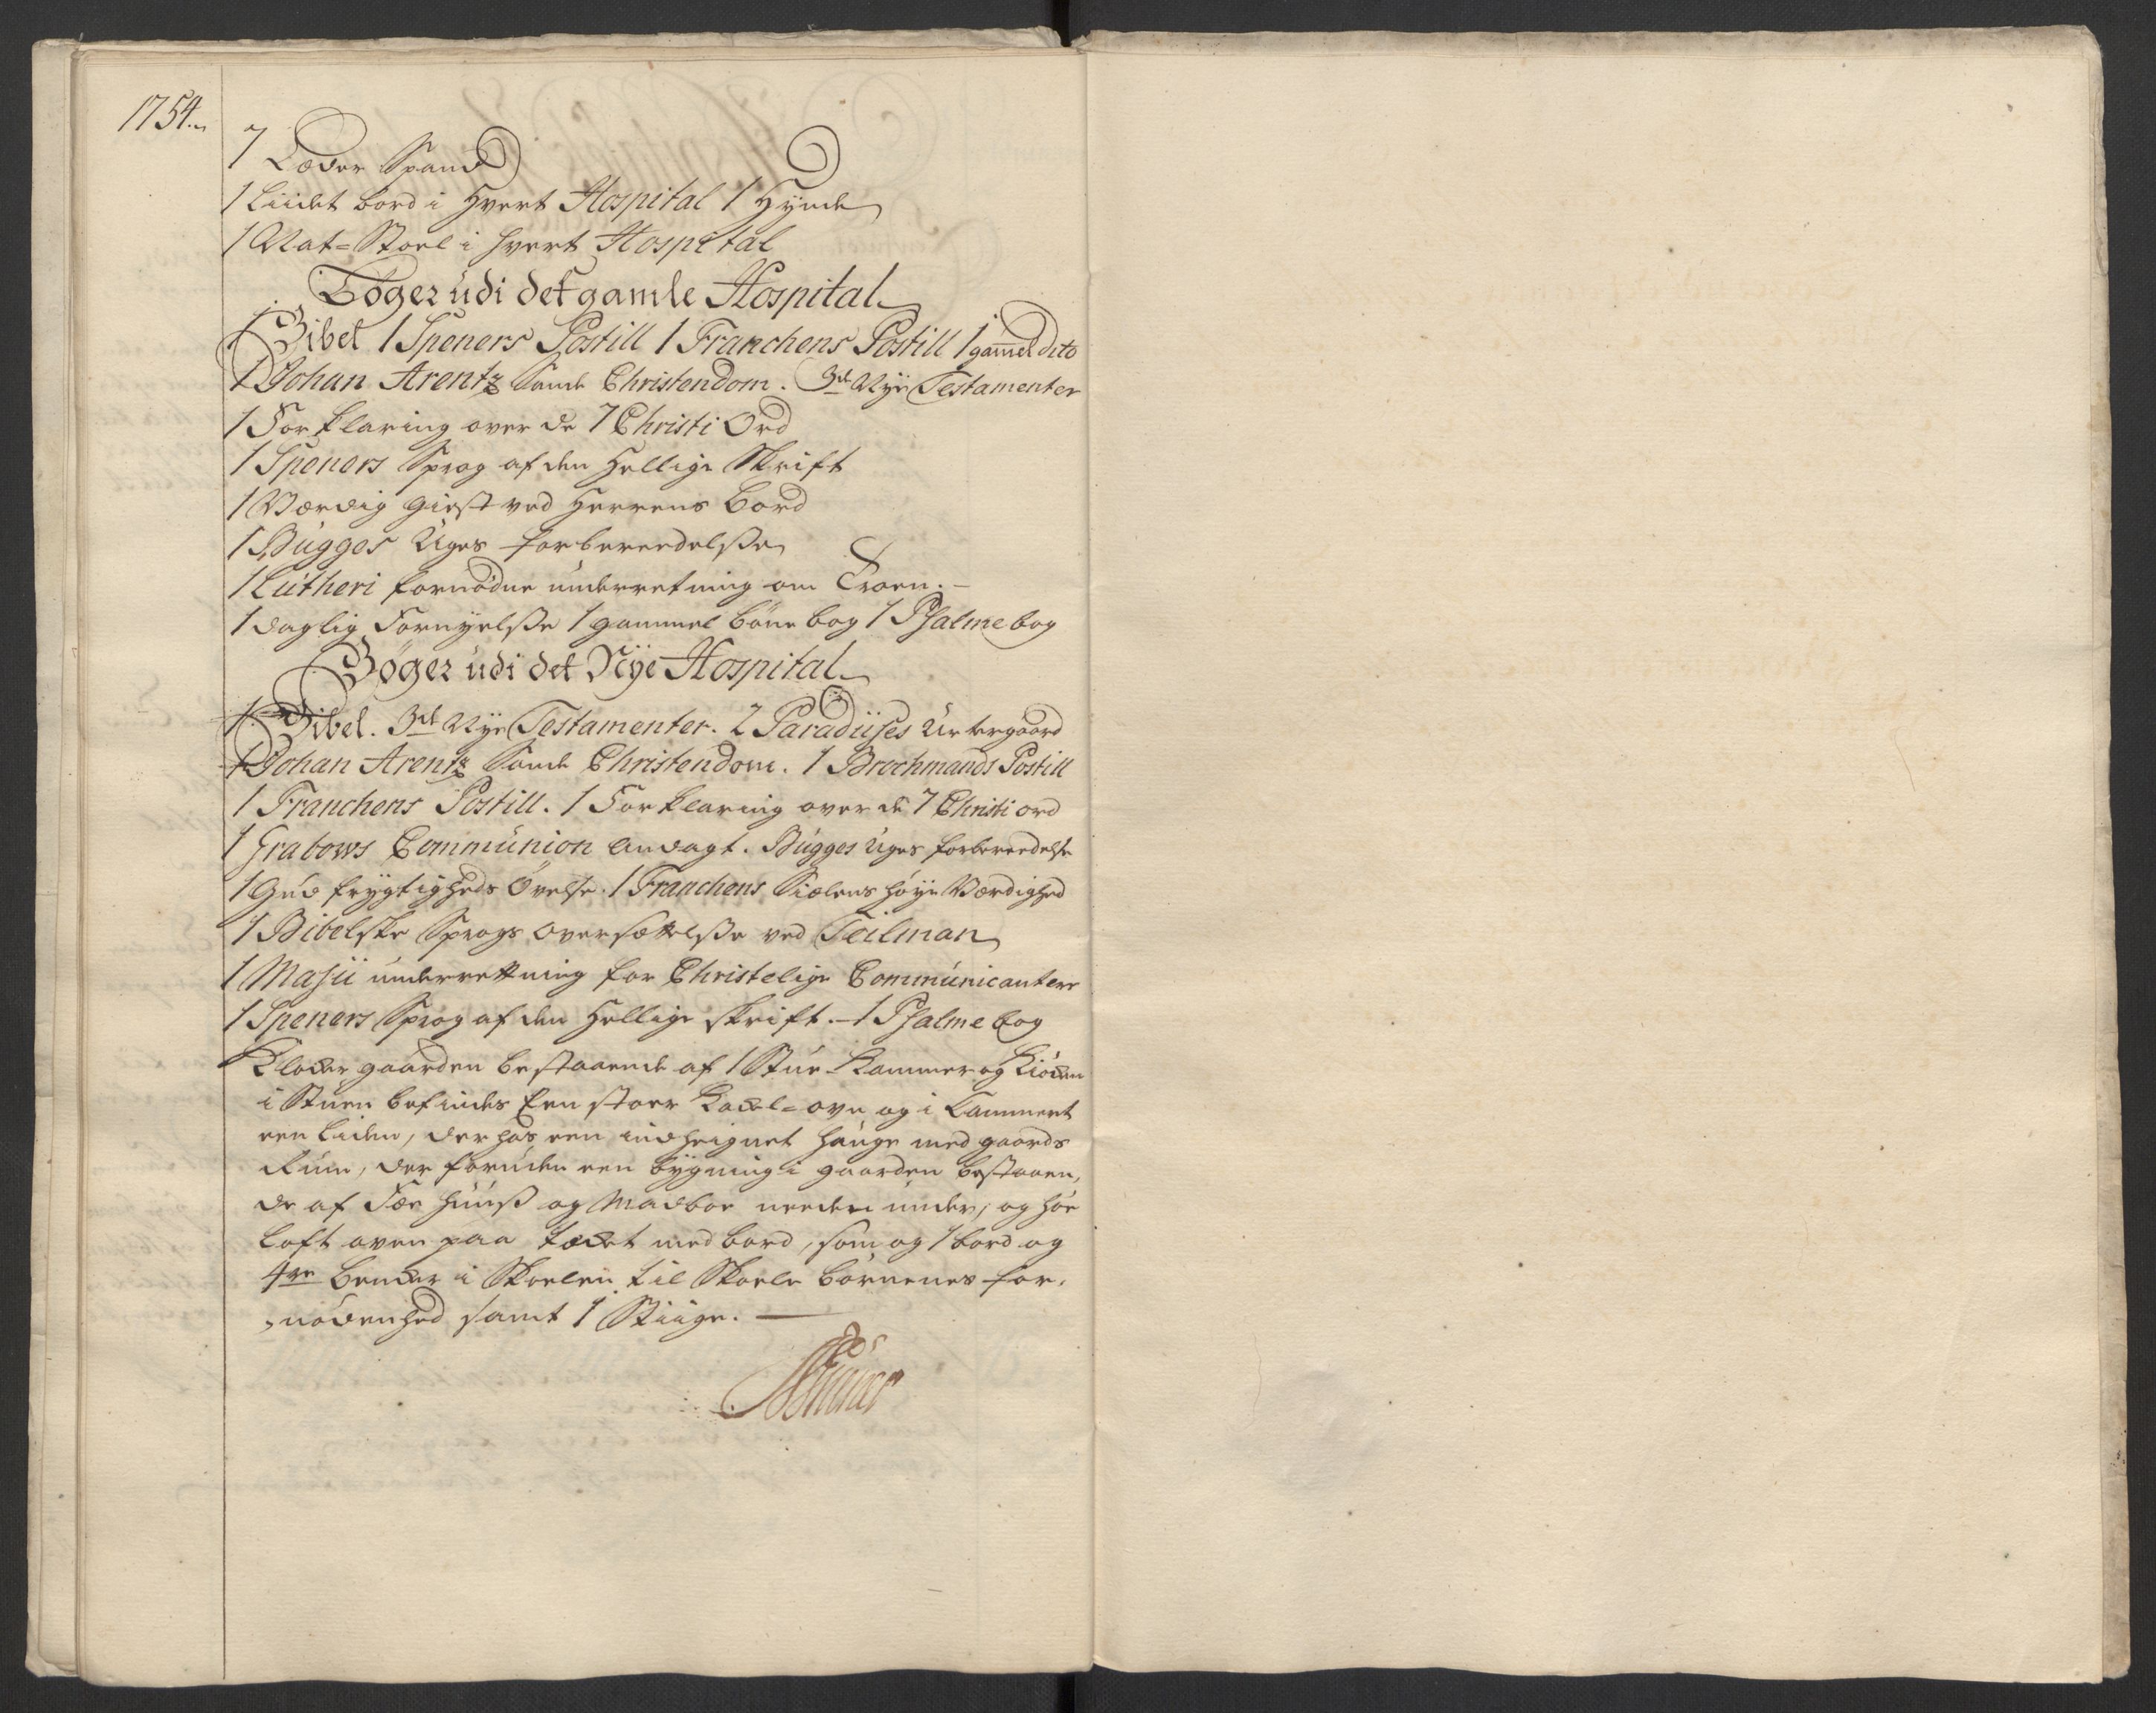 1754.
7 Læder Spand
1 Liidet bord i Hvert Hospital 1 Hynde
1 Nat-Stoel i hvert Hospital
Bøger udi det gamle Hospital
1 Bibel 1 Speners Postill 1 Franchens Postill 1 gam̅el dito
1 Johan Arentz Sande Christendom. 3de Nye Testamenter
1 Forklaring over de 7 Christi Ord
1 Speners Sprog af den Hellige Skrift
1 Værdig Giest ved Herrens Bord
1 Bugges Uges forbereedelße
1 Lutheri fornødne underretning om Troen.
1 Daglig Fornyelße 1 gammel bønne bog 1 Psalme bog
Bøger udi det Nye Hospital
1 Bibel. 3de Nye Testamenter. 2 Paradiises Urtegaard
1 Johan Arentz Sande Christendom. 1 Brochmands Postill
1 Franchens Postill. 1 Forklaring over de 7 Christi ord
1 Grabows Communion Andagt. Bugges Uges forbereedelse
1 Gudfrygtigheds Øvelse. 1 Franchens Siælens høye Værdighed
1 Bibelske Sprogs Oversættelße ved Teilman
1 Masii underrettning for Christelige Communicantere
1 Speners Sprog af den Hellige skrift. 1 Psalme bog
Klocker gaarden bestaaende af 1 Stue Kammer og Kiøcken
i Stuen befindes Een stoer Kackel-ovn og i Kammeret
een liden, der hos een indheignet Hauge med gaards
Rum, der foruden een bygning i gaarden bestaaen,
de af Fæe huuß og Madboe needen under, og høe
loft oven paa tæcket med bord, som og 1 bord og
4re Bencker i Skoelen til Skoele børnenes for,
nødenhed samt 1 Stiige.